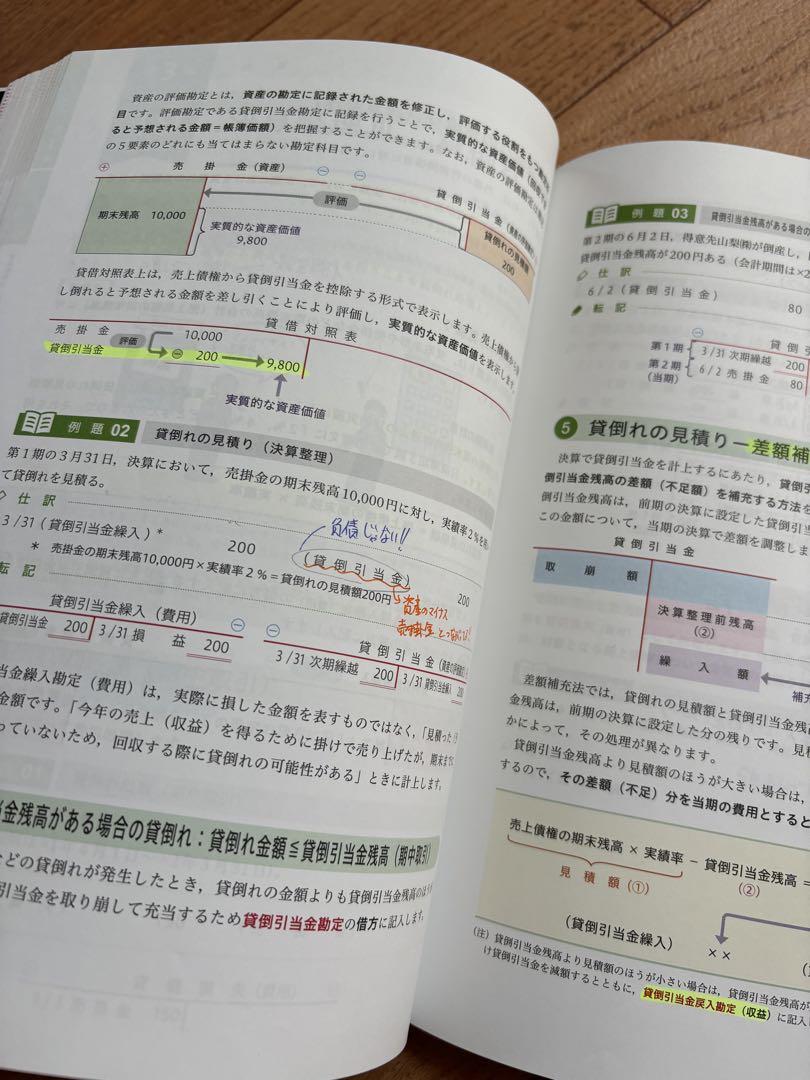 資産の評価勘定とは，資産の勘定に記録された金額を修正し，評価する役割をもつ
目です。評価勘定である貸倒引当金勘定に記録を行うことで，実質的な資産価値
ると予想される金額＝帳簿価額）を把握することができます。なお，資産の評価勘定は
の５要素のどれにも当てはまらない勘定科目です。
⊕ 売 掛 金（資産） ⊖ ⊖
貸 倒 引 当 金
期末残高 10,000
評価
実質的な資産価値
9,800
貸倒れの見積額
200
貸借対照表上は，売上債権から貸倒引当金を控除する形式で表示します。売上債権から
し倒れると予想される金額を差し引くことにより評価し，実質的な資産価値を表示します。
貸 借 対 照 表
売 掛 金 10,000
評価
貸倒引当金 ⊖ 200 9,800
実質的な資産価値
例題 02 貸倒れの見積り（決算整理）
第１期の３月31日，決算において，売掛金の期末残高10,000円に対し，実績率２％を
て貸倒れを見積る。
仕 訳
3/31（貸倒引当金繰入）* 200 （貸 倒 引 当 金） 200
負債じゃない!!
* 売掛金の期末残高10,000円×実績率２％＝貸倒れの見積額200円
資産のマイナス
売掛金と
転 記
貸倒引当金繰入（費用） ⊖
貸倒引当金 200 3/31 損 益 200
⊖ 貸 倒 引 当 金
3/31 次期繰越 200 3/31 貸倒引当金繰入 200
当金繰入勘定（費用）は，実際に損した金額を表すものではなく，「見積った
金額です。「今年の売上（収益）を得るために掛けで売り上げたが，期末まで
っていないため，回収する際に貸倒れの可能性がある」ときに計上します。
当金残高がある場合の貸倒れ：貸倒れ金額≦貸倒引当金残高（期中取引）
などの貸倒れが発生したとき，貸倒れの金額よりも貸倒引当金残高の
引当金を取り崩して充当するため貸倒引当金勘定の借方に記入します。
例題 03 貸倒引当金残高がある場合の
第２期の６月２日，得意先山梨㈱が倒産し，
貸倒引当金残高が200円ある（会計期間は×2
仕 訳
6/2（貸 倒 引 当 金） 80
転 記
⊖ 貸 倒 引
第１期 3/31 次期繰越 200
第２期 6/2 売 掛 金 80
（当期）
5 貸倒れの見積り－差額補
決算で貸倒引当金を計上するにあたり，貸倒引
倒引当金残高の差額（不足額）を補充する方法を
倒引当金残高は，前期の決算に設定した貸倒引当
この金額について，当期の決算で差額を調整しま
貸 倒 引 当 金
取 崩 額
決算整理前残高
（②）
繰 入 額
補
差額補充法では，貸倒れの見積額と貸倒引当金残高
金残高は，前期の決算に設定した分の残りです。見積
かによって，その処理が異なります。
貸倒引当金残高より見積額のほうが大きい場合は，
するので，その差額（不足）分を当期の費用とすると
売上債権の期末残高 × 実績率 − 貸倒引当金残高 =
見 積 額（①） （②）
（貸倒引当金繰入） ××
（注）貸倒引当金残高より見積額のほうが小さい場合は，貸倒引当金残高が
け貸倒引当金を減額するとともに，貸倒引当金戻入勘定（収益）に記入